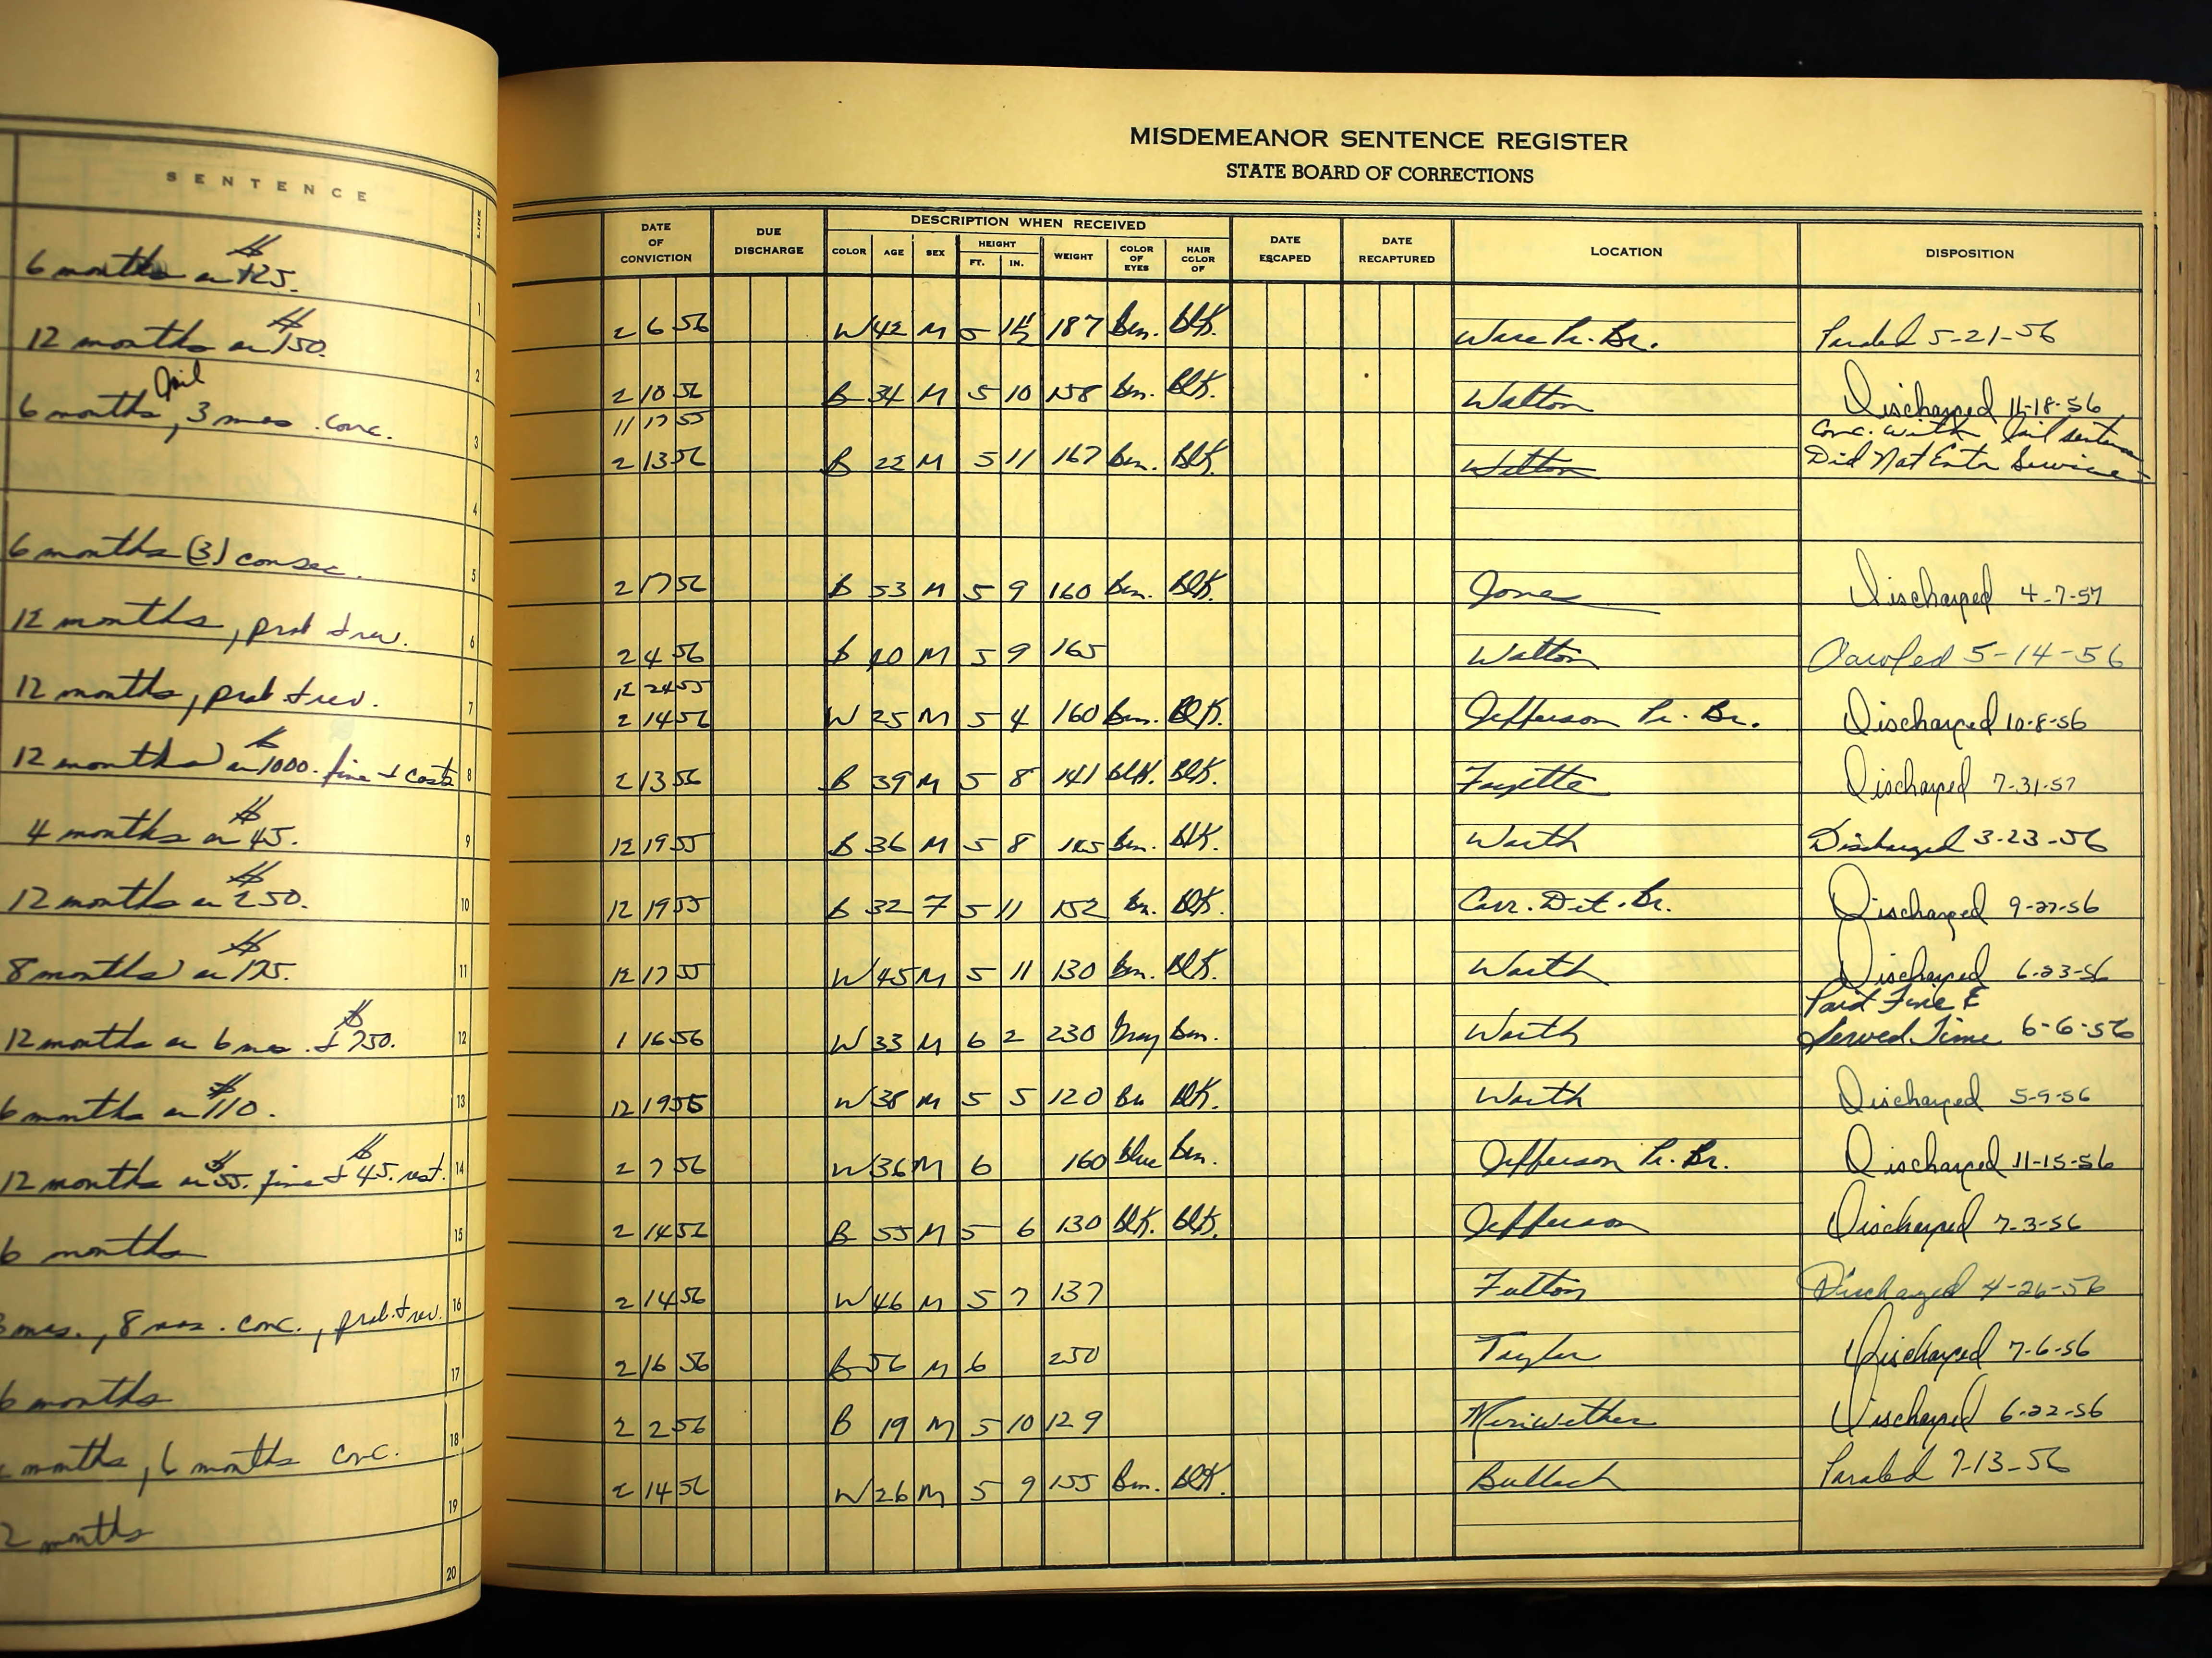 SENTENCE
LINE
6 months or $125.
1
12 months or $150.
2
Jail
6 months, 3 mos. conc.
3
4
6 months (3) consec.
5
12 months, prob + rev.
6
12 months, prob + rev.
7
12 months or $1000. fine + costs
8
4 months or $45.
9
12 months or $250.
10
8 months or $175.
11
12 months or 6 mos. + $750.
12
6 months or $110.
13
12 months or $55. fine + $45. rest.
14
6 months
15
mos., 8 mos. conc., prob. + rev.
16
6 months
17
months, 6 months conc.
18
2 months
19
20
MISDEMEANOR SENTENCE REGISTER
STATE BOARD OF CORRECTIONS
DATE OF CONVICTION DUE DISCHARGE DESCRIPTION WHEN RECEIVED DATE ESCAPED DATE RECAPTURED LOCATION DISPOSITION
COLOR AGE SEX HEIGHT FT. IN. WEIGHT COLOR OF EYES HAIR COLOR OF
2 6 56 W 42 M 5 187 Brn. Blk. Ware Pr. Br. Paroled 5-21-56
2 10 56 B 34 M 5 10 158 Brn. Blk. Walton Discharged 11-18-56
11 17 55 Conc. with Jail sentence
2 13 56 B 22 M 5 11 167 Brn. Blk. Walton Did Not Enter Service
2 17 56 B 53 M 5 9 160 Brn. Blk. Jones Discharged 4-7-57
2 4 56 B 40 M 5 9 165 Walton Paroled 5-14-56
12 24 55
2 14 56 W 25 M 5 4 160 Brn. Blk. Jefferson Pr. Br. Discharged 10-8-56
2 13 56 B 39 M 5 8 141 Blk. Blk. Fayette Discharged 7-31-57
12 19 55 B 36 M 5 8 Brn. Blk. Worth Discharged 3-23-56
12 19 55 B 32 F 5 11 152 Bn. Blk. Corr. Det. Br. Discharged 9-27-56
12 17 55 W 45 M 5 11 130 Brn. Blk. Worth Discharged 6-23-56
Paid Fine &
1 16 56 W 33 M 6 2 230 Gray Brn. Worth Served Time 6-6-56
12 19 55 W 38 M 5 5 120 Bn Blk. Worth Discharged 5-9-56
2 7 56 W 36 M 6 160 Blue Brn. Jefferson Pr. Br. Discharged 11-15-56
2 14 56 B 55 M 5 6 130 Blk. Blk. Jefferson Discharged 7-3-56
2 14 56 W 46 M 5 7 137 Fulton Discharged 4-26-56
2 16 56 B 56 M 6 250 Taylor Discharged 7-6-56
2 2 56 B 19 M 5 10 129 Meriwether Discharged 6-22-56
2 14 56 W 26 M 5 9 155 Brn. Blk. Bulloch Paroled 7-13-56